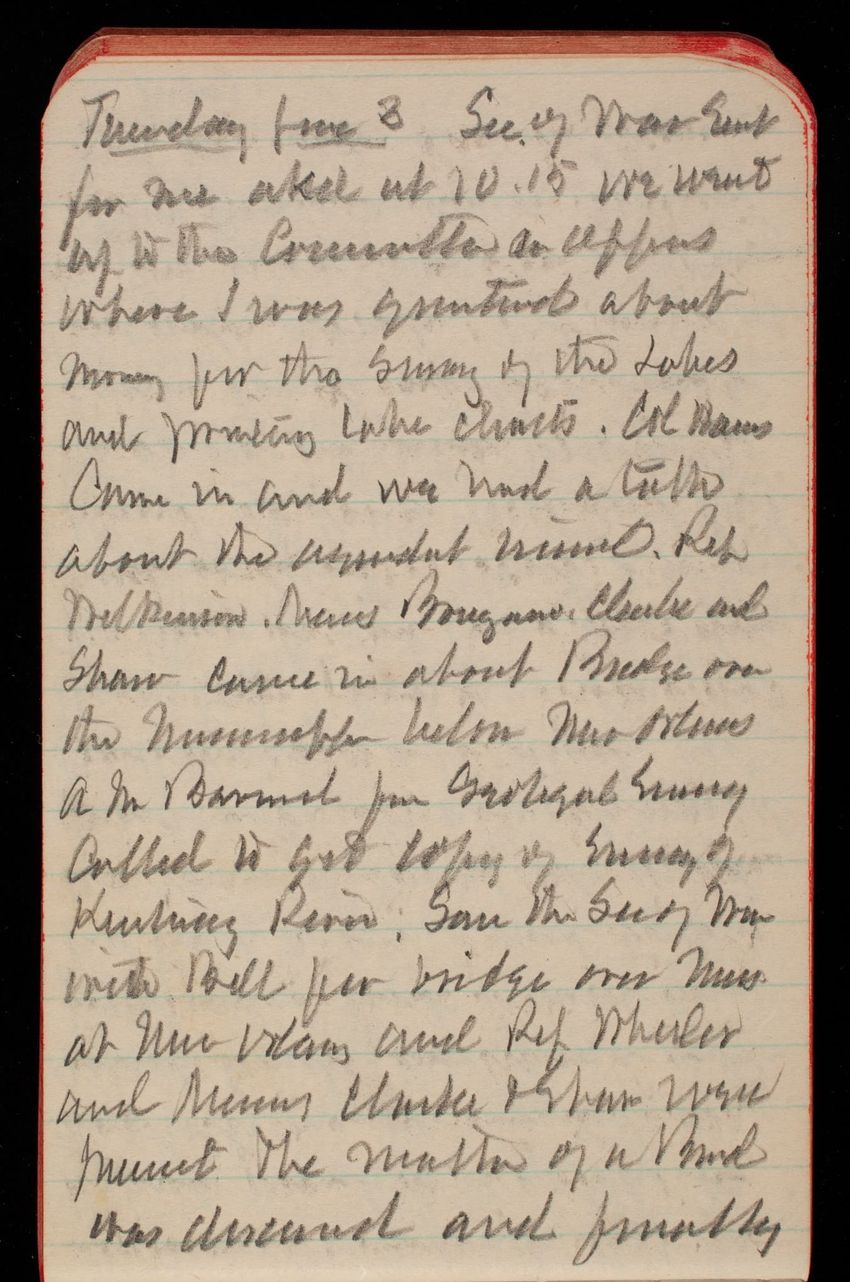 Tuesday June 3 Sec. of War Sent
for me and at 10.15 we went
up to the Committee on Approps
where I was questioned about
money for the Survey of the Lakes
and printing Lake charts. Col
Came in and we had a talk
about the aqueduct tunnel. Rep
Wilkinson. Messrs Clarke and
Shaw came in about Bridge over
the Mississippi below New Orleans
A M from Geological Survey
Called to get copy of Survey of
Kentucky River. Saw the Sec of War
with Bill for bridge over Miss
at New Orleans and Rep Wheeler
and Messrs Clarke & Shaw were
present The matter of a Board
was discussed and finally